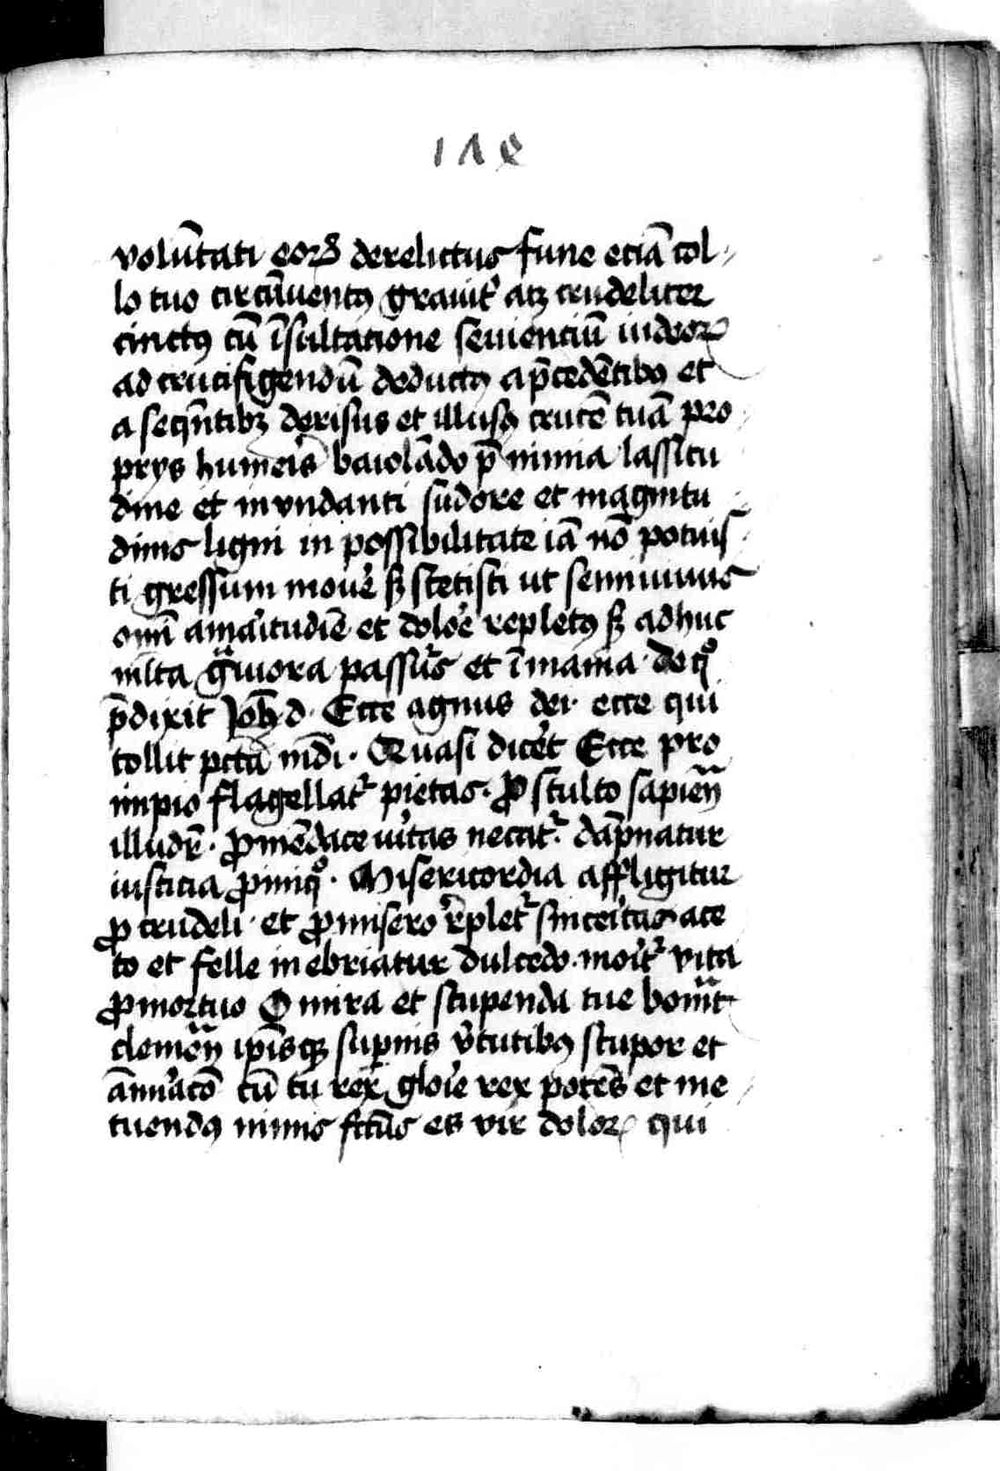 178
volūtati eoꝝ derelictus fune eciā col-
lo tuo circūuentꝰ grauitʼ atqꝫ crudeliter
cinctꝰ cū īsultatione seuienciū iudeoꝝ
ad crucifigendū deductꝰ a p̄cedētibꝰ et
a seqn̄tibꝫ derisus et illusꝰ crucē tuā pro
prijs humeris baiolādo p̄ nimia lassitu
dine et inundanti sudore et magnitu
dinis ligni in possibilitate iā nō potuis
ti gressum mouē sꝫ stetisti ut semiuiuus
omī amāitudīe et doloē repletꝰ sꝫ adhuc
mlta gͣuiora passurꝰ et īmania · de qͦ
p̄dixit Joh̄ d · Ecce agnus dei · ecce qui
tollit pctā mdī · Quasi dicēt Ecce pro
impio flagellatʼ pietas · ꝓ stulto sapien̄
illudr̄ · ꝓ mēdace uītas necatʼ · dāpnatur
iusticia ꝓ iniqͦ · Misericordia affligitur
ꝓ crudeli · et ꝓ misero replet᷑ sinceītas ace
to et felle inebriatur dulcedo · moritʼ vita
ꝓ mortuo O mira et stupenda tue bonit̄
clemen̄ ip̄isqꝫ suꝑnis v̄tutibꝰ stupor et
āmiracō cū tu rex gloīe rex potēs et me
tuendꝰ nimis fctūs es vir doloꝝ qui